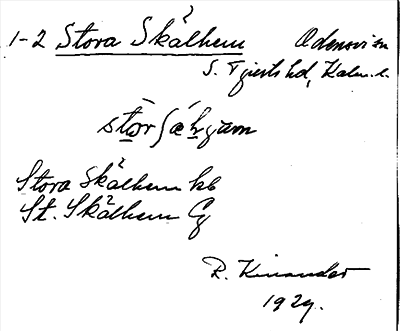 1-2 Stora Skålhem Odensvi sn
S. Tjusts hd, Kalm. l.
Stora Skålhem kb
St. Skålhem Cg
R. Kinander
1929.